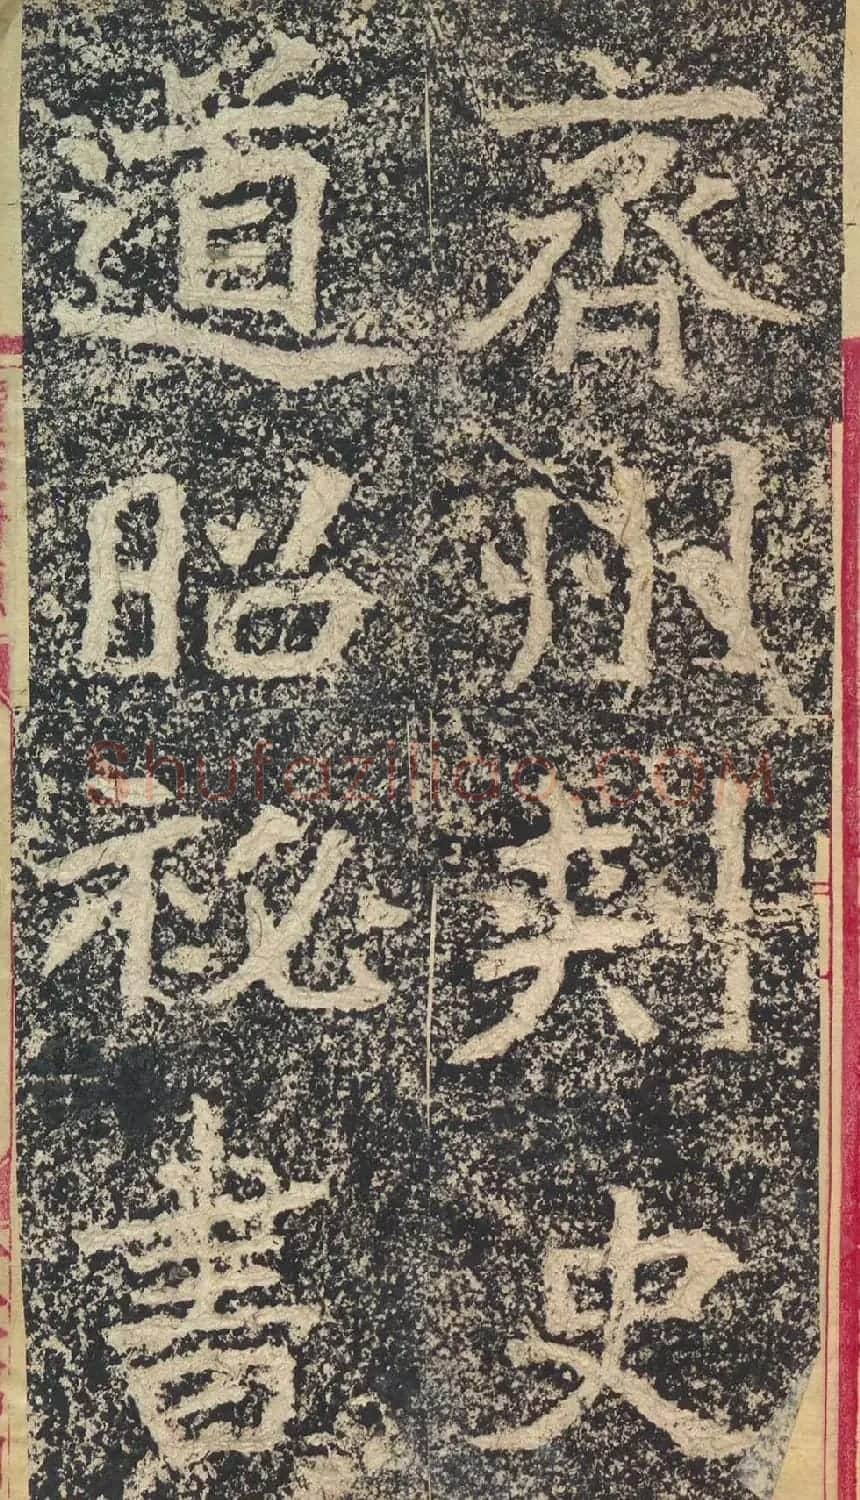 齊州刾史
道昭秘書
shufaziliao.com